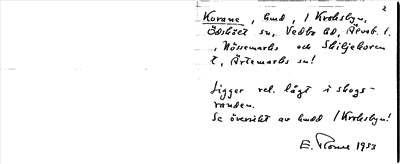 2
Korane, hmd, i Krokebyn,
Ödskölt sn, Vedbo hd, Älvsb. l.
, Nössemarks och Skiljekoren
t, Ärtemarks sn!
Ligger rel. lågt i skogs-
randen.
Se översikt av hmd i Krokebyn!
E. 1953